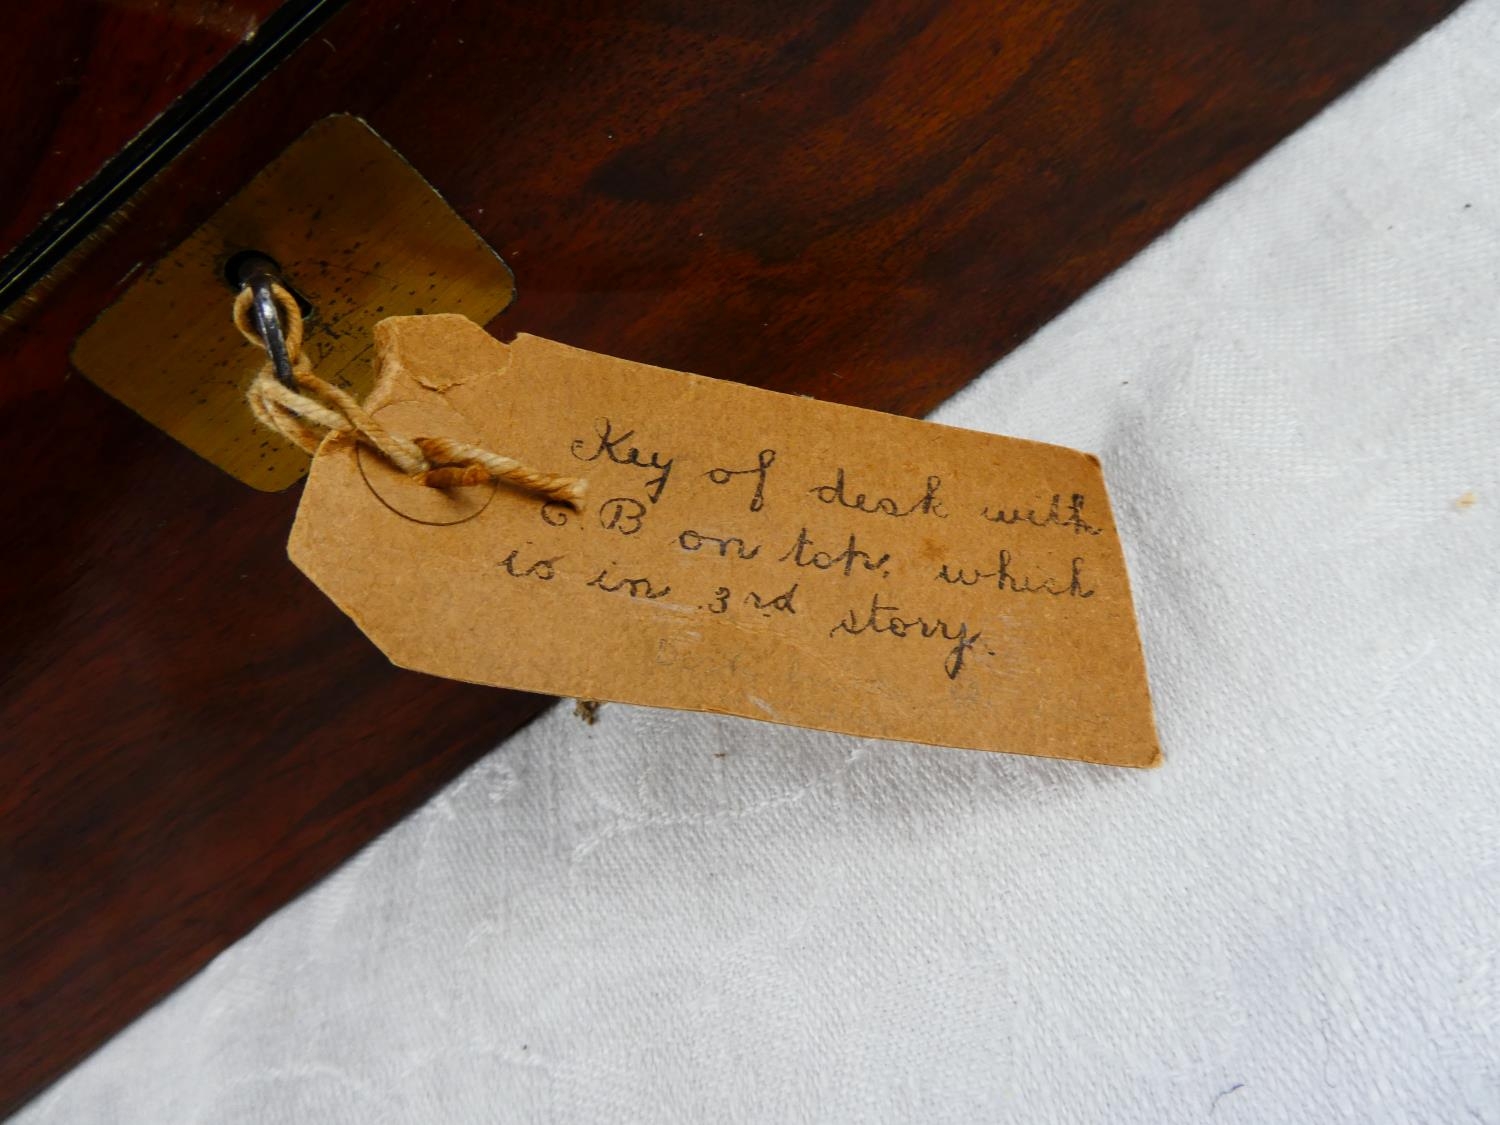 Key of desk with
C. B on top, which
is in 3rd story.